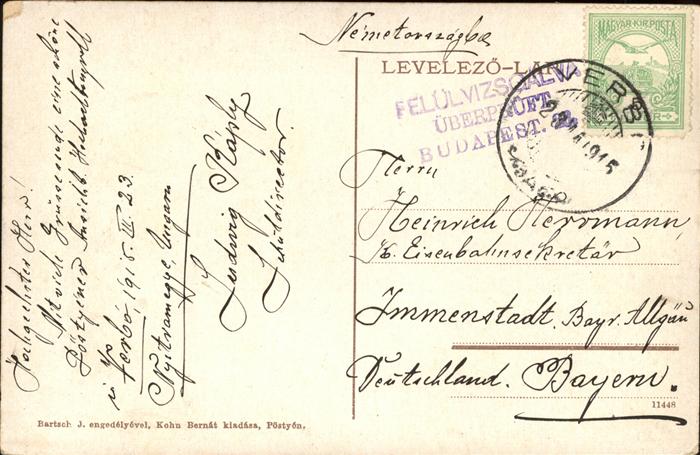 Hochgeehrter Herr!
Mit viele Grüsse sende eine schöne
Pöstyéner Ansicht. Hochachtungsvoll
Verbó 1915. III. 23.
Nyitramegye, Ungarn
Ludwig Káply
Schuldirector.
Bartsch J. engedélyével, Kohn Bernát kiadása, Pöstyén.
Németországba
LEVELEZŐ-LAP
FELÜLVIZSGÁLVA
ÜBERPRÜFT
BUDAPEST.
MAGYAR KIR. POSTA
VERBÓ
1915
Herrn
Heinrich Herrmann,
k. Eisenbahnsekretär
Immenstadt, Bayr. Allgäu
Deutschland. Bayern.
11448